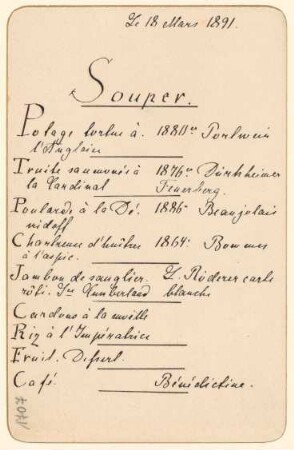 Le 18 Mars 1891.
Souper.
Potage tortue à 1880er Portwein
l'Anglaise
Truite saumonée à 1876er Dürkheimer
la Cardinal Feuerberg.
Poularde à la Dé- 1886er Beaujolais
midoff
Chartreuse d'huîtres 1864er Bommes
à l'aspic.
Jambon de sanglier L. Röderer carte
rôti. Sce Cumberland blanche
Cardons à la moëlle
Riz à l'Impératrice
Fruit. Dessert.
Café Bénédictine.